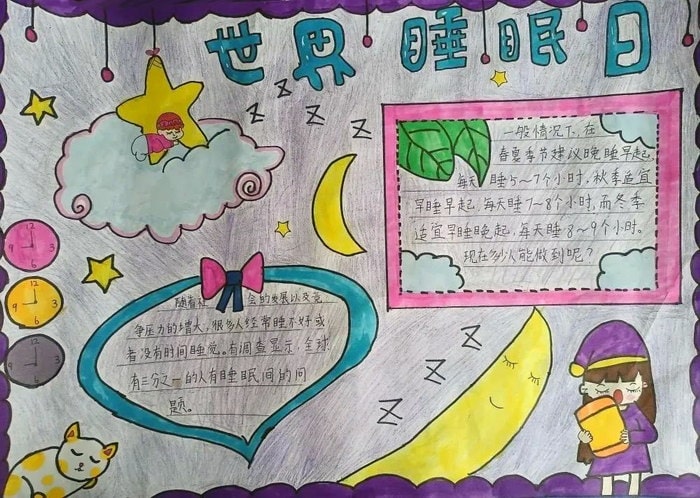 世界 睡眠日
z
z
z
z
一般情况下,在
春夏季节建议晚睡早起,
每天睡5~7个小时,秋季适宜
早睡早起,每天睡7~8个小时,而冬季
适宜早睡晚起,每天睡8~9个小时。
现在多少人能做到呢?
12
9 3
6
12
9 3
6
12
9 3
6
随着社会的发展以及竞
争压力的增大,很多人经常睡不好或
者没有时间睡觉。有调查显示,全球
有三分之一的人有睡眠间的问
题。
z
z
z
z